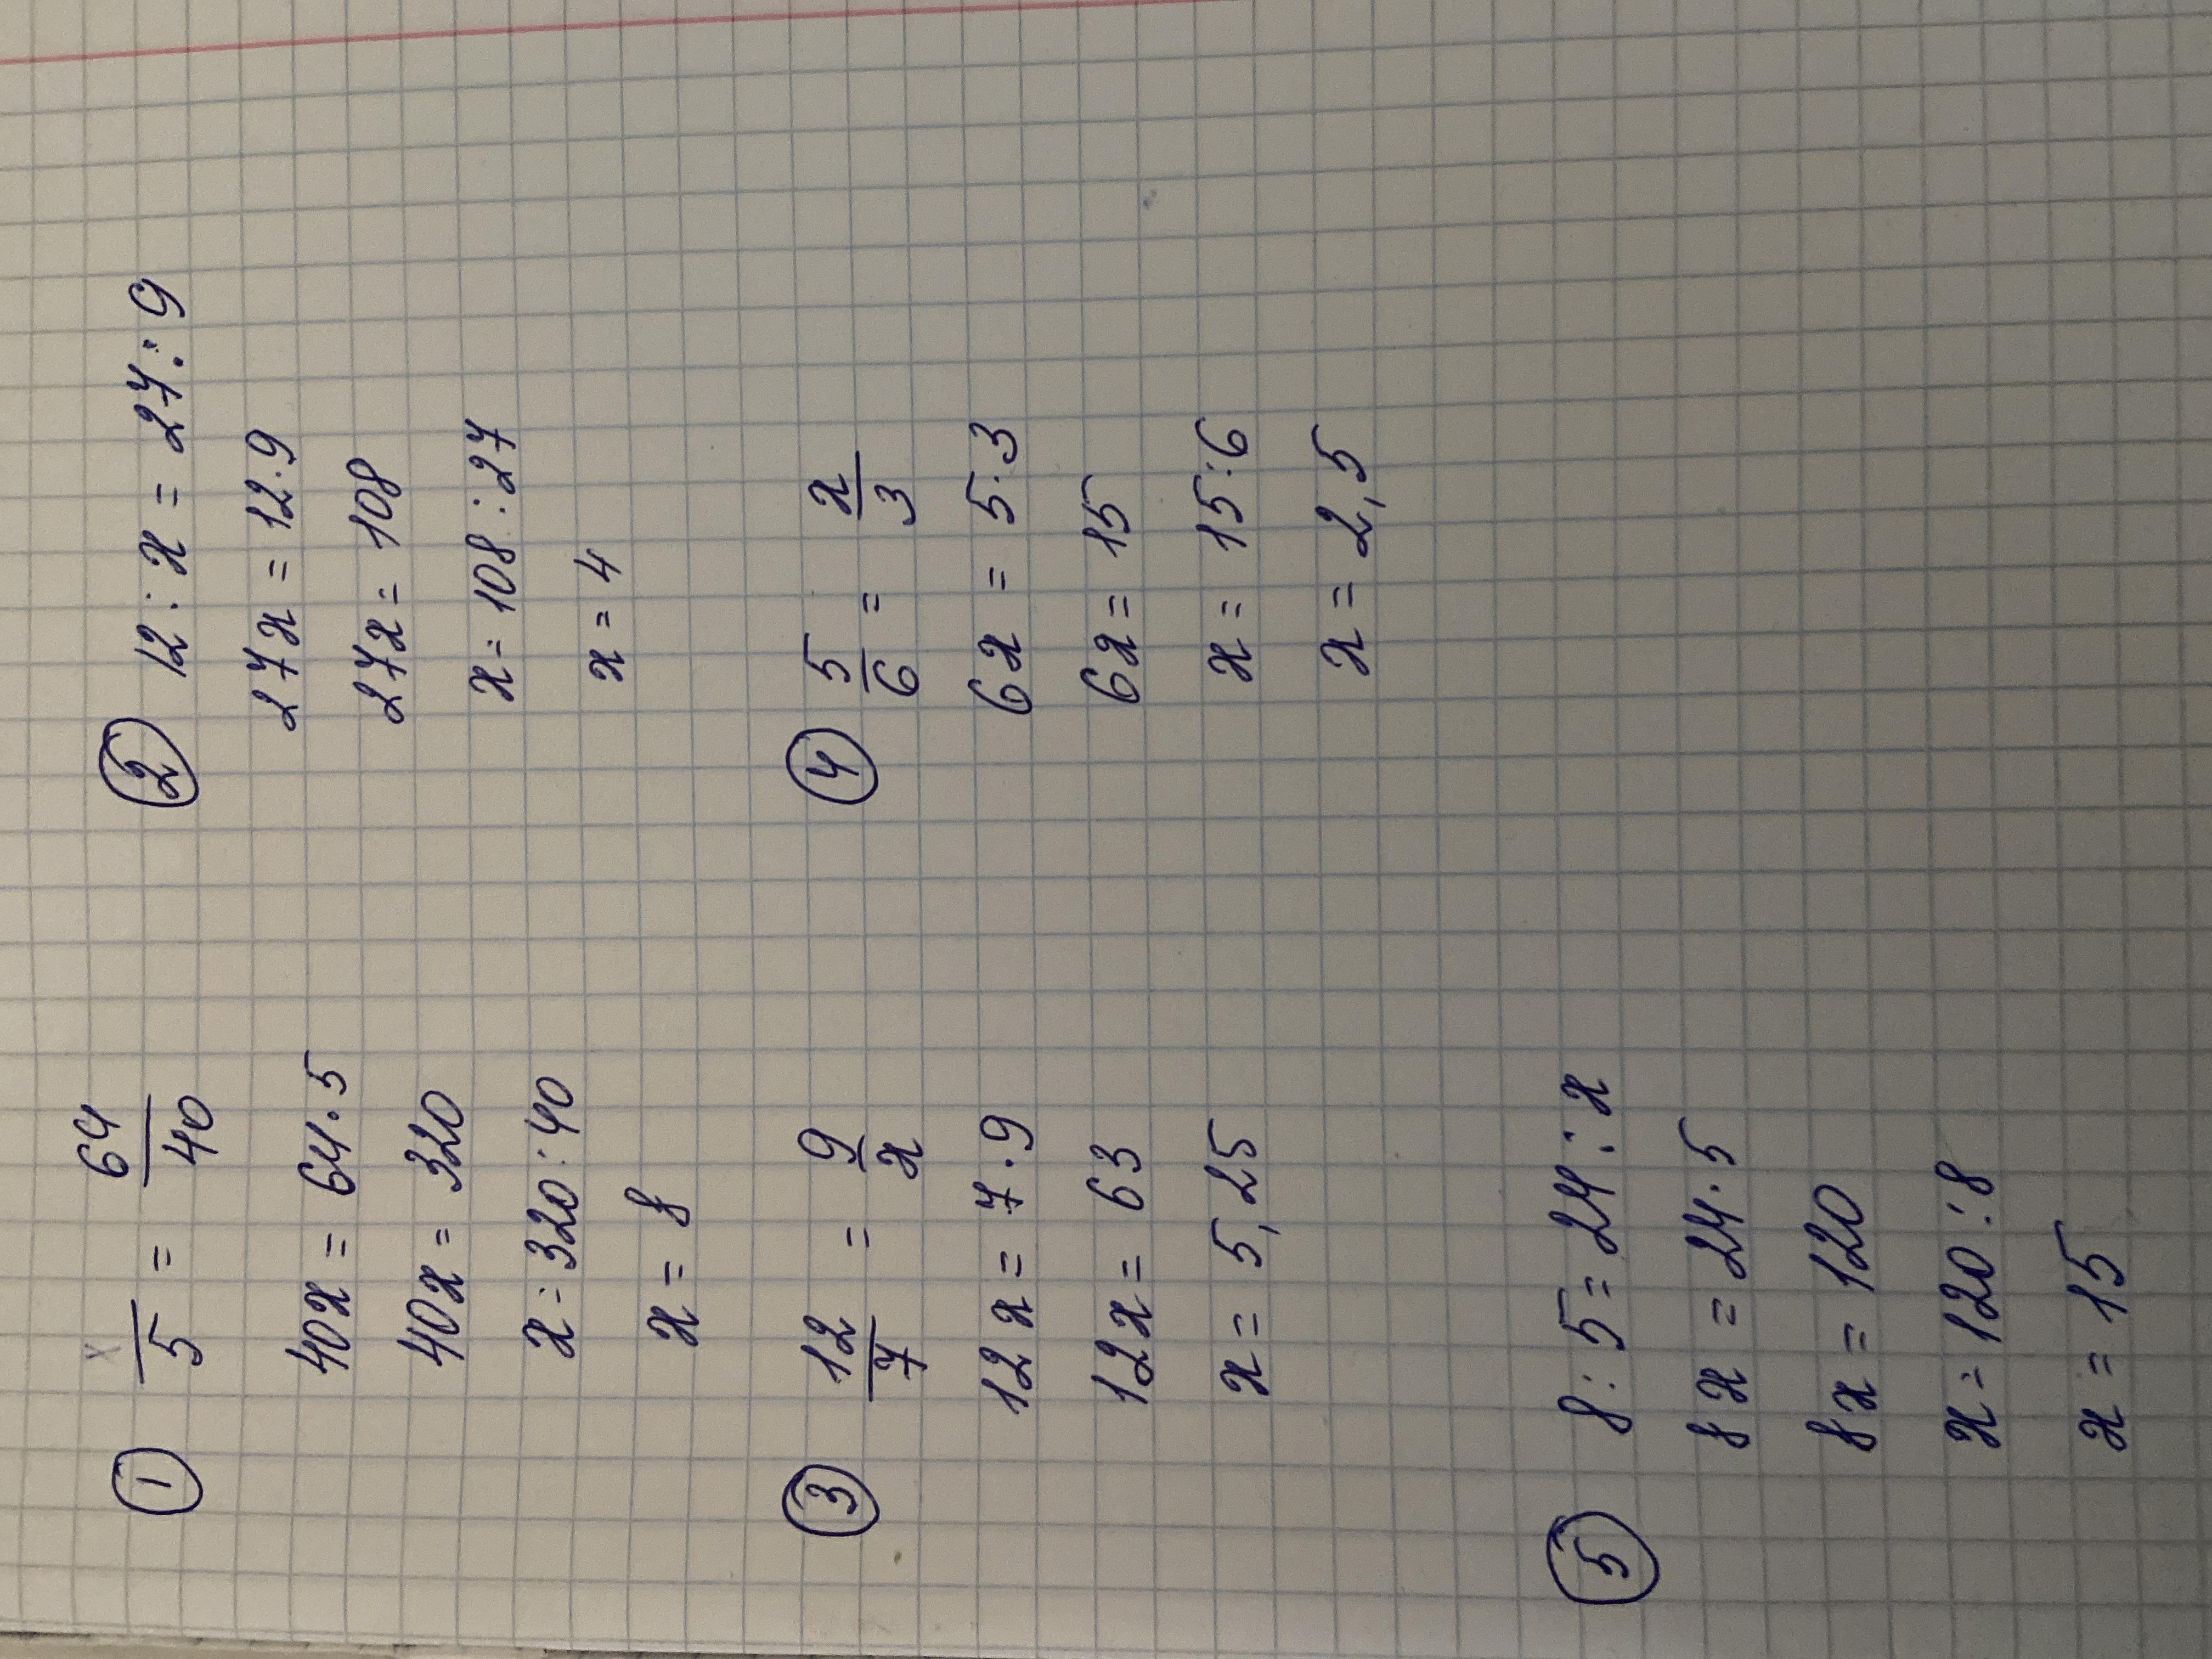 ① x/5 = 64/40
40x = 64·5
40x = 320
x = 320:40
x = 8
② 12:x = 27:9
27x = 12·9
27x = 108
x = 108:27
x = 4
③ 12/7 = 9/x
12x = 7·9
12x = 63
x = 5,25
④ 5/6 = x/3
6x = 5·3
6x = 15
x = 15:6
x = 2,5
⑤ 8:5 = 24:x
8x = 24·5
8x = 120
x = 120:8
x = 15